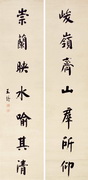 峻嶺齊山羣所仰
崇蘭映水喻其清
王